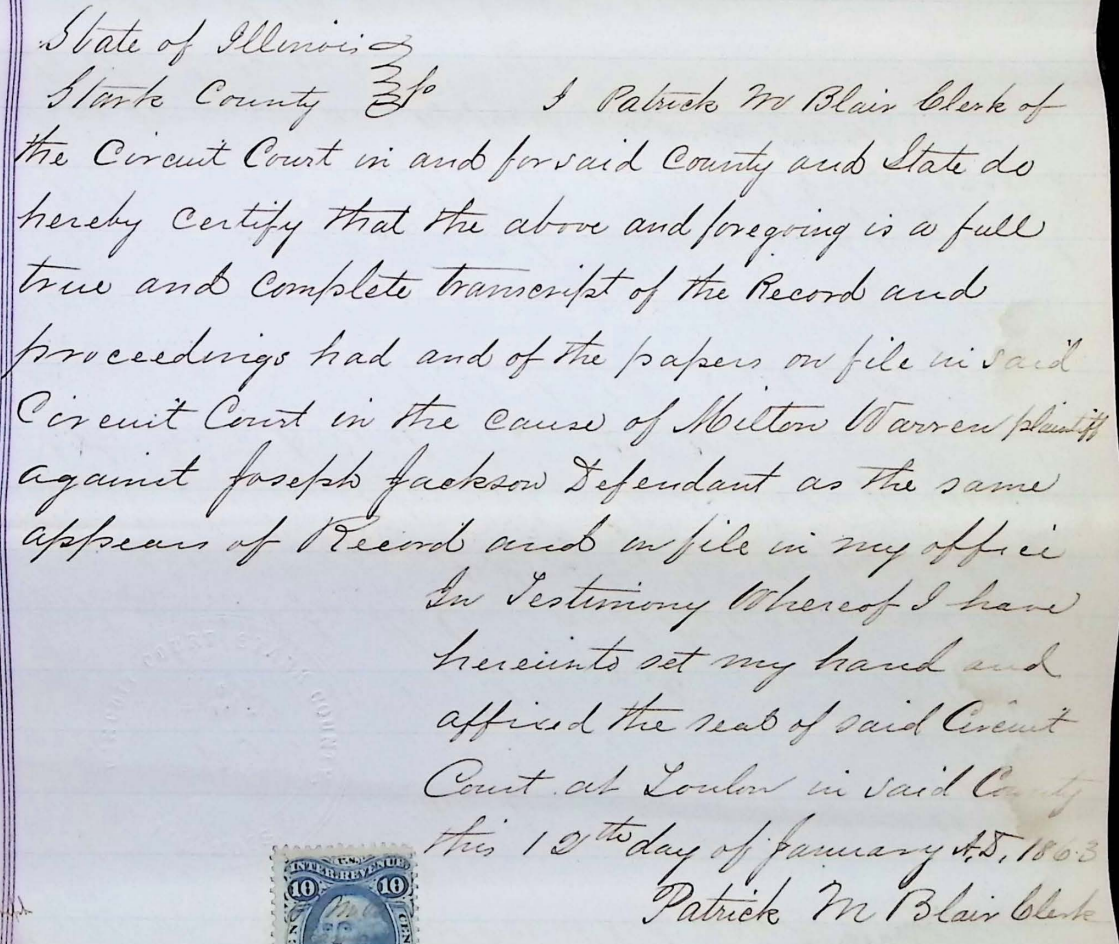 State of Illinois
Stark County } ss I Patrick M Blair Clerk of
the Circuit Court in and for said County and State do
hereby certify that the above and foregoing is a full
true and complete transcript of the Record and
proceedings had and of the papers on file in said
Circuit Court in the cause of Milton Warren plaintiff
against Joseph Jackson Defendant as the same
appears of Record and on file in my office
In Testimony Whereof I have
hereunto set my hand and
affixed the seal of said Circuit
Court at Toulon in said County
this 12th day of January A.D. 1863
Patrick M Blair Clerk
U.S.
INTER. REVENUE
10 10